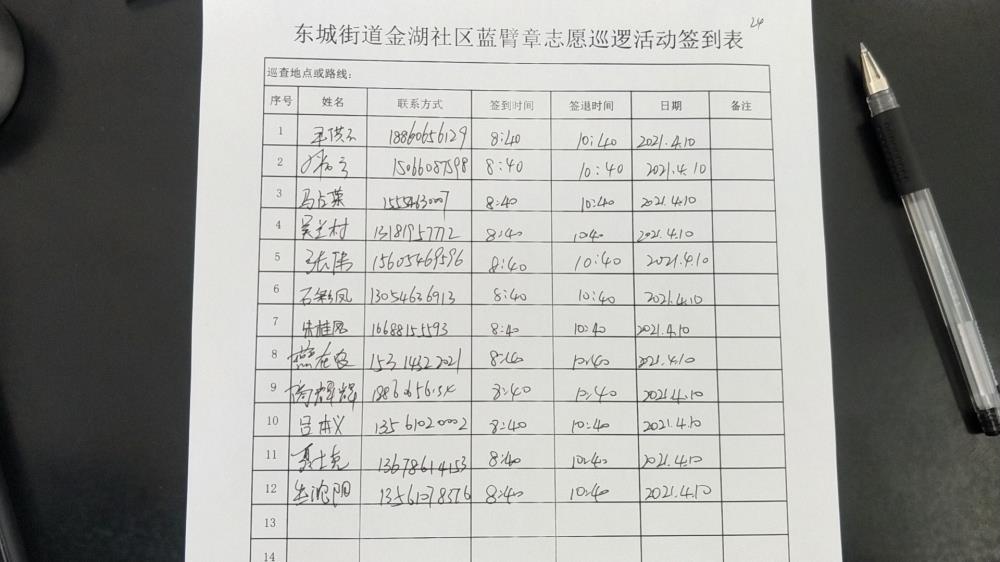 24
东城街道金湖社区蓝臂章志愿巡逻活动签到表
巡查地点或路线：
序号 姓名 联系方式 签到时间 签退时间 日期 备注
1 18860656129 8:40 10:40 2021.4.10
2 15066087598 8:40 10:40 2021.4.10
3 马占英 15554630007 8:40 10:40 2021.4.10
4 吴兰村 13181957772 8:40 10:40 2021.4.10
5 张伟 15605469596 8:40 10:40 2021.4.10
6 石彩凤 13054636913 8:40 10:40 2021.4.10
7 朱桂凤 16688155593 8:40 10:40 2021.4.10
8 15314322021 8:40 10:40 2021.4.10
9 8:40 10:40 2021.4.10
10 吕本义 13561020002 8:40 10:40 2021.4.10
11 聂士克 13678614153 8:40 10:40 2021.4.10
12 13561078376 8:40 10:40 2021.4.10
13
14